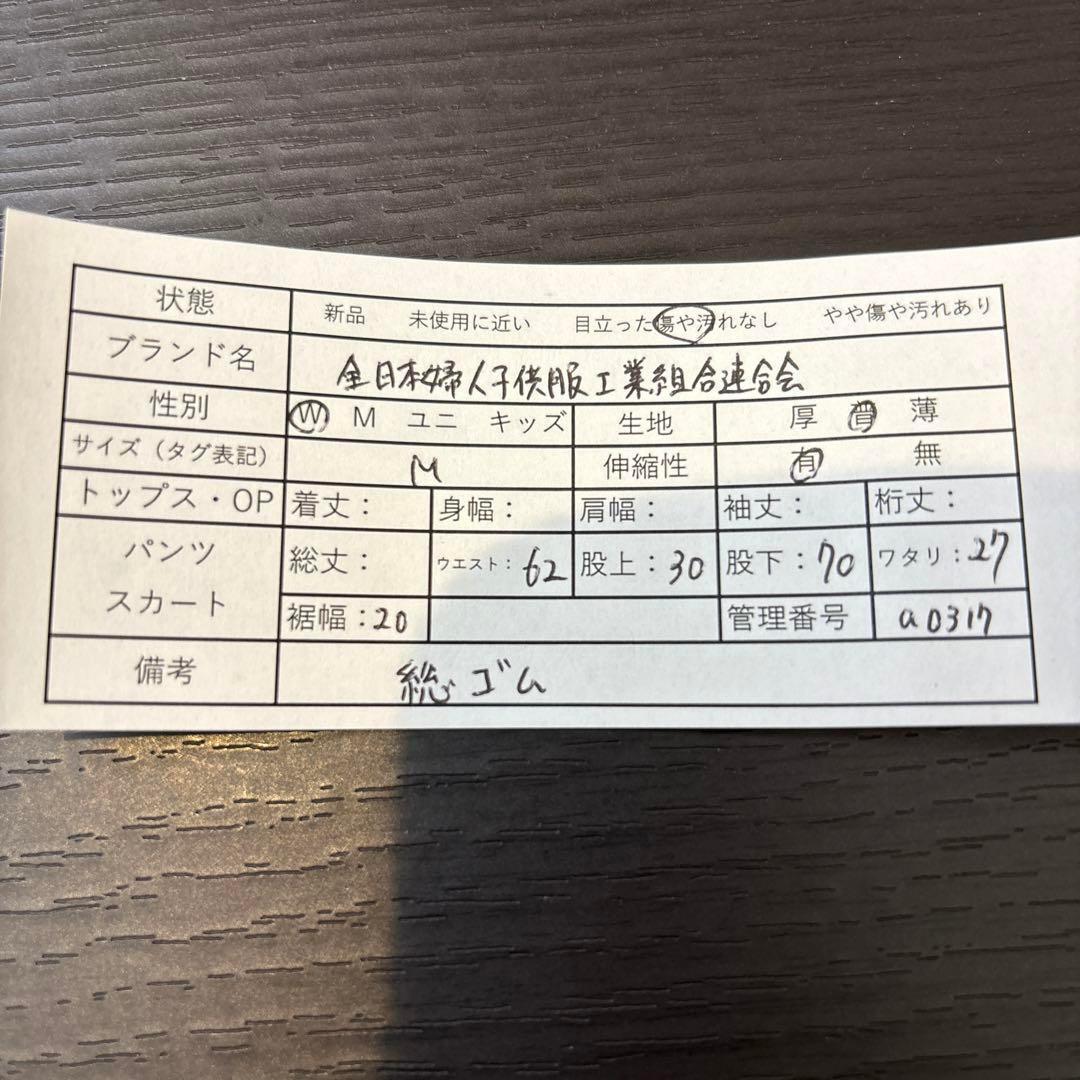 状態 新品 未使用に近い 目立った傷や汚れなし やや傷や汚れあり
ブランド名 全日本婦人子供服工業組合連合会
性別 W M ユニ キッズ 生地 厚 普 薄
サイズ（タグ表記） M 伸縮性 有 無
トップス・OP 着丈： 身幅： 肩幅： 袖丈： 裄丈：
パンツ スカート 総丈： ウエスト：62 股上：30 股下：70 ワタリ：27
裾幅：20 管理番号 a0317
備考 総ゴム